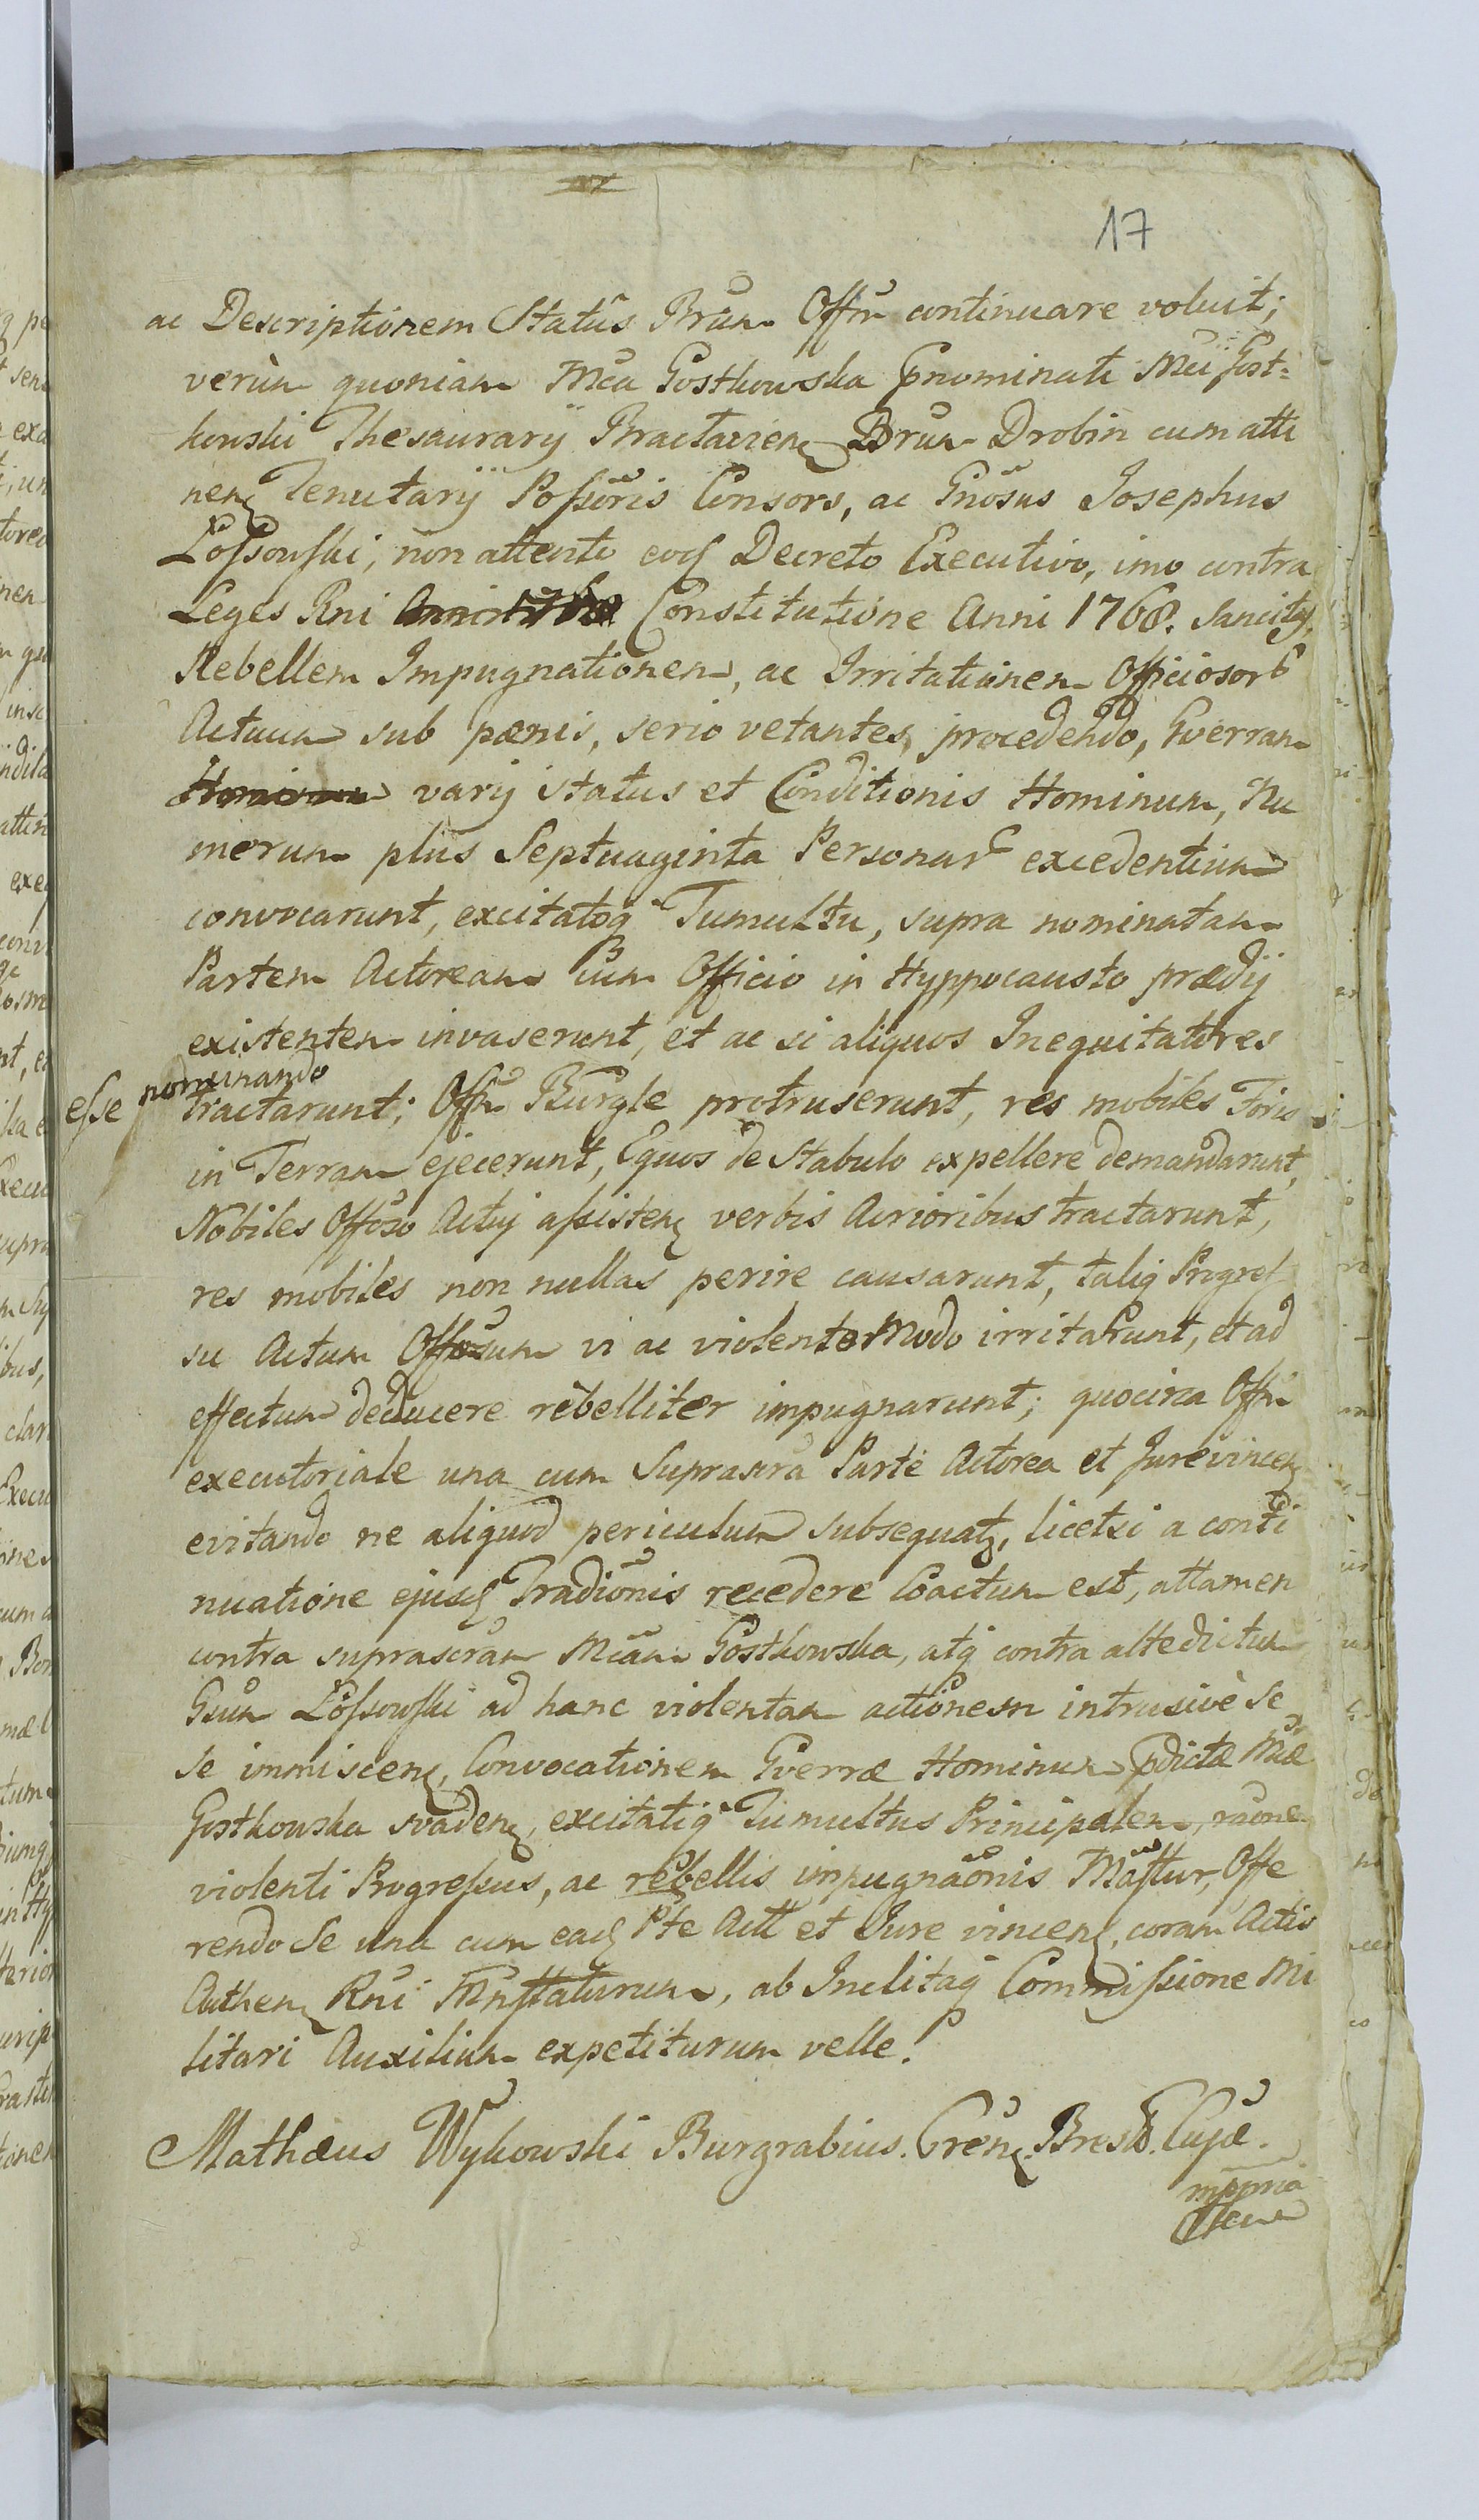 17
ac Descriptionem Statûs Brun Offm continuare voluit;
verùm quoniam Mca Gostkowska Pnominati Mci Gost=
kowski Thesaurarij Bractavien Brun Drobin cum atti
nen Tenutarij Possoris Consors, ac Gnosus Josephus
Lossowski, non attento eod Decreto Executivo, imo contra
Leges Rni Constitutione Anni 1768. Sancitas,
Rebellem Impugnationem, ac Irritationem Officiosor
Actuum sub pœnis, serio vetantes, procedendo, Gverram
varij status et Conditionis Hominum, Nu
merum plus Septuaginta Personar excedentium
convocarunt, excitatoq Tumultu, supra nominatam
Partem Actoream Cum Officio in Hyppocausto prædij
existentem invaserunt, et ac si aliquos Inequitatores
esse nominando
tractarunt; Offm Burgle protruserunt, res mobiles Foris
in Terram ejecerunt, Equos de Stabulo expellere demandarunt,
Nobiles Offoso Actuj assisten verbis Acrioribus tractarunt,
res mobiles non nullas perire causarunt, taliq Progres
su Actum Offosum vi ac violento Modo irritarunt, et ad
effectum deducere rebelliter impugnarunt; quocirca Offm
executoriale una cum Suprascra Parte Actorea et Jurevincen
evitando ne aliquod periculum subsequat, licetsi a conti
nuatione ejusd Tradionis recedere Coactum est, attamen
contra suprascram Mcam Gostkowska, atq contra altedictum
Gsum Lossowski ad hanc violentam actionem intrusivè se
se immiscen, Convocationem Gverræ Hominum Pdictæ Mcæ
Gostkowska svaden, excitatiq Tumultus Principalem, raone
violenti Progressus, ac rebellis impugnaonis Masttur, Offe
rendo Se una cum ead Pte Act et Jure vincen, coram Actis
Authen Rni Mnfttaturum, ab Inclitaq Commissione Mi
litari Auxilium expetiturum velle.
Mathæus Wykowski Burgrabius. Cren. Brest. Cujæ.
mppria